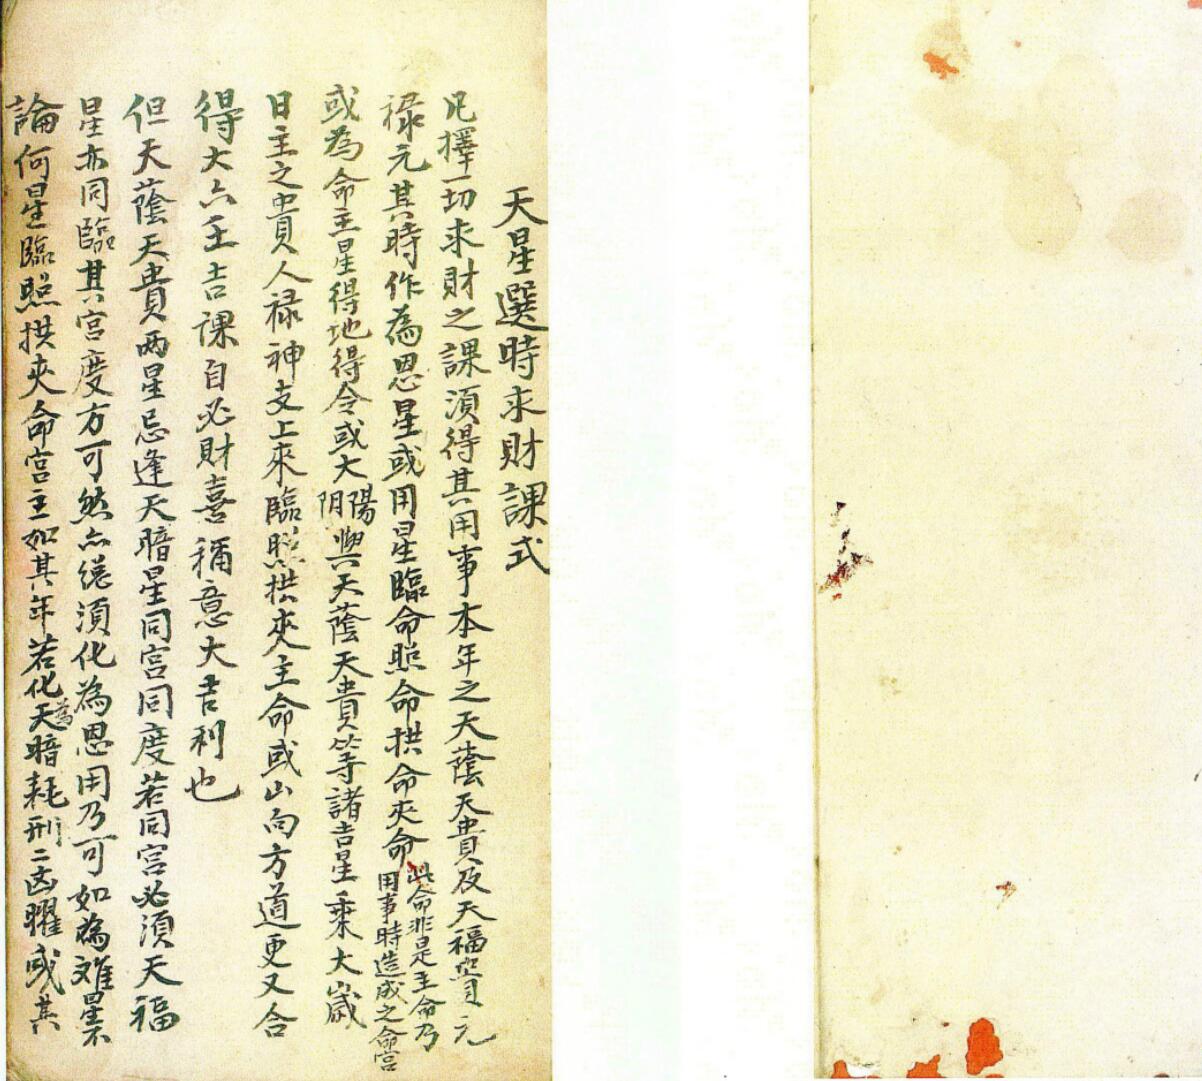 天星選時求財課式
凡擇一切求財之課須得其用事本年之天蔭天貴及天福官貝元
祿元其時作為恩星或用星臨命照命拱命夾命此命非是主命乃用事時造成之命宮
或為命主星得地得令或大陽陰與天蔭天貴等諸吉星乘大歲
日主之貴人祿神支上來臨照拱夾主命或山向方道更又合
得大六壬吉課自必財喜稱意大吉利也
但天蔭天貴两星忌逢天暗星同宮同度若同宮必須天福
星亦同臨其宮度方可然亦總須化為恩用乃可如為难星不
論何星臨照拱夾命宮主如其年若化為天暗耗刑二凶曜或其